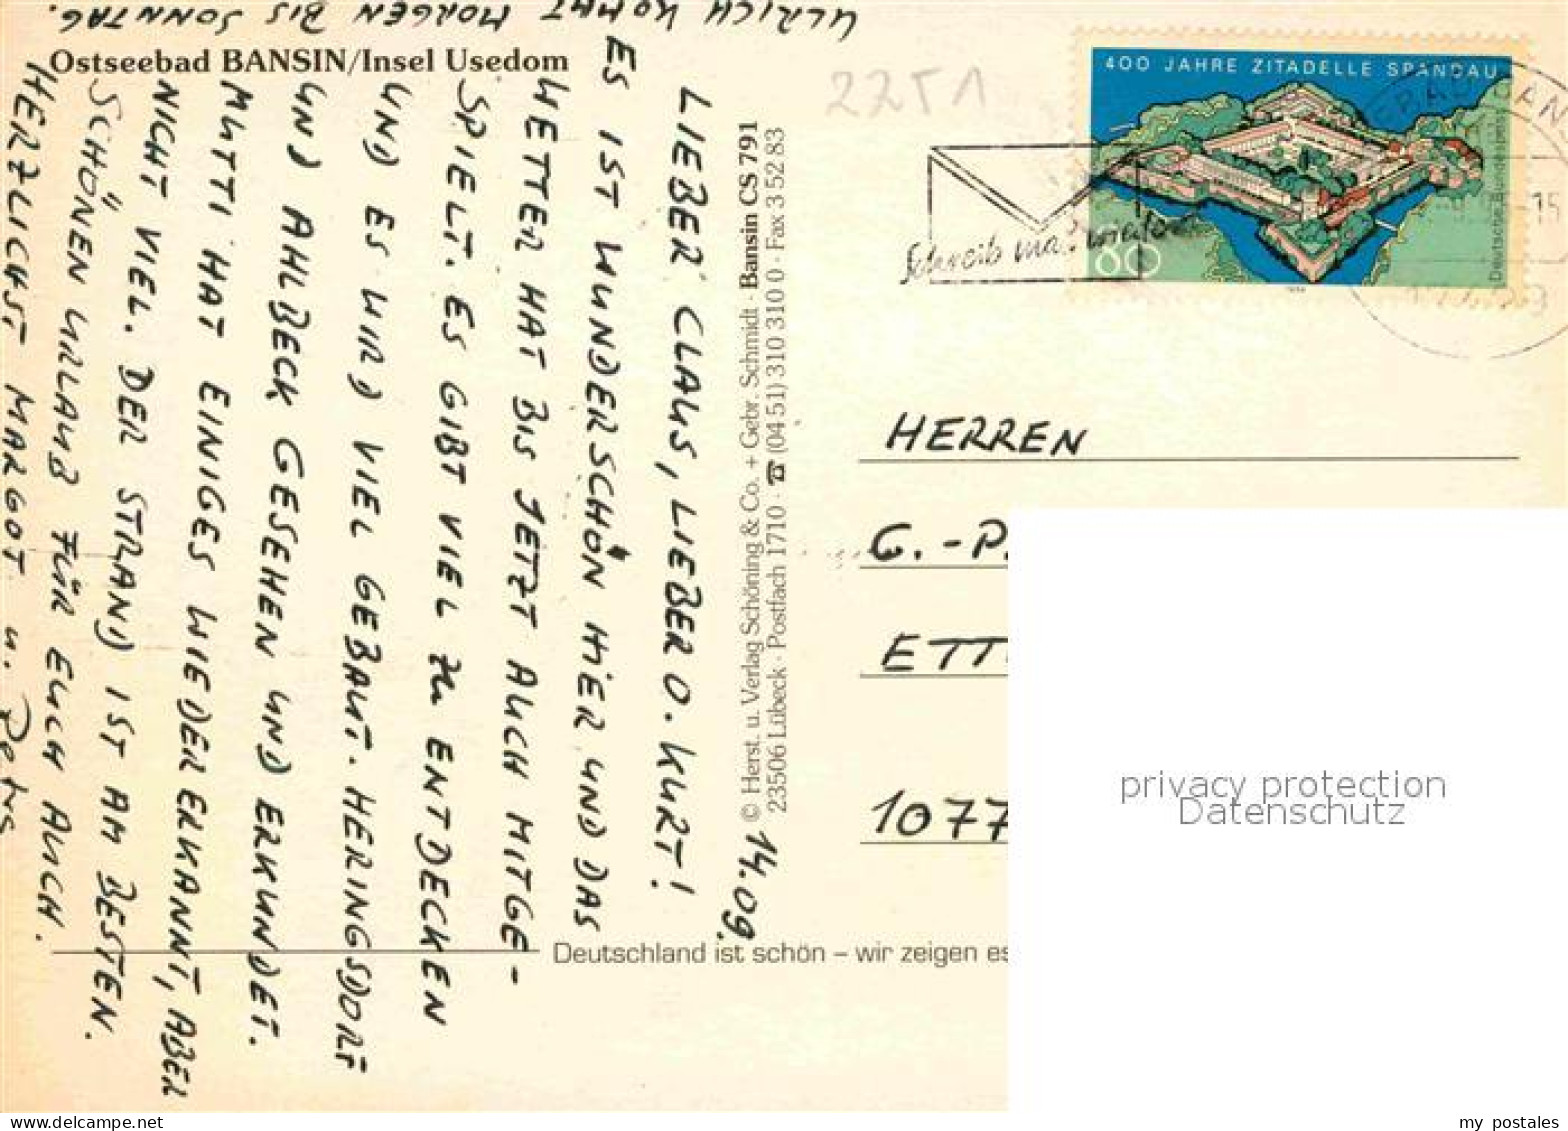 Ostseebad BANSIN/Insel Usedom
14.09.
LIEBER CLAUS, LIEBER O. KURT!
ES IST WUNDERSCHÖN HIER UND DAS
WETTER HAT BIS JETZT AUCH MITGE-
SPIELT. ES GIBT VIEL ZU ENTDECKEN
UND ES WIRD VIEL GEBAUT. HERINGSDORF
UND AHLBECK GESEHEN UND ERKUNDET.
MUTTI HAT EINIGES WIEDERERKANNT, ABER
NICHT VIEL. DER STRAND IST AM BESTEN.
SCHÖNEN URLAUB FÜR EUCH AUCH.
HERZLICHST MARGOT u. Petra
ULRICH KOMMT MORGEN BIS SONNTAG.
© Herst. u. Verlag Schöning & Co. + Gebr. Schmidt · Bansin CS 791
23506 Lübeck · Postfach 1710 · ☎ (04 51) 310 310 0 · Fax 3 52 83
Deutschland ist schön – wir zeigen es
2251
400 JAHRE ZITADELLE SPANDAU
Deutsche Bundespost
80
Schreib mal wieder
-15
HERREN
C.-P.
ETT
1077
privacy protection
Datenschutz
my postales